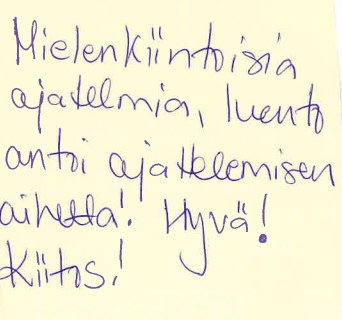 Mielenkiintoisia
ajatelmia, luento
antoi ajattelemisen
aihetta! Hyvä!
Kiitos!